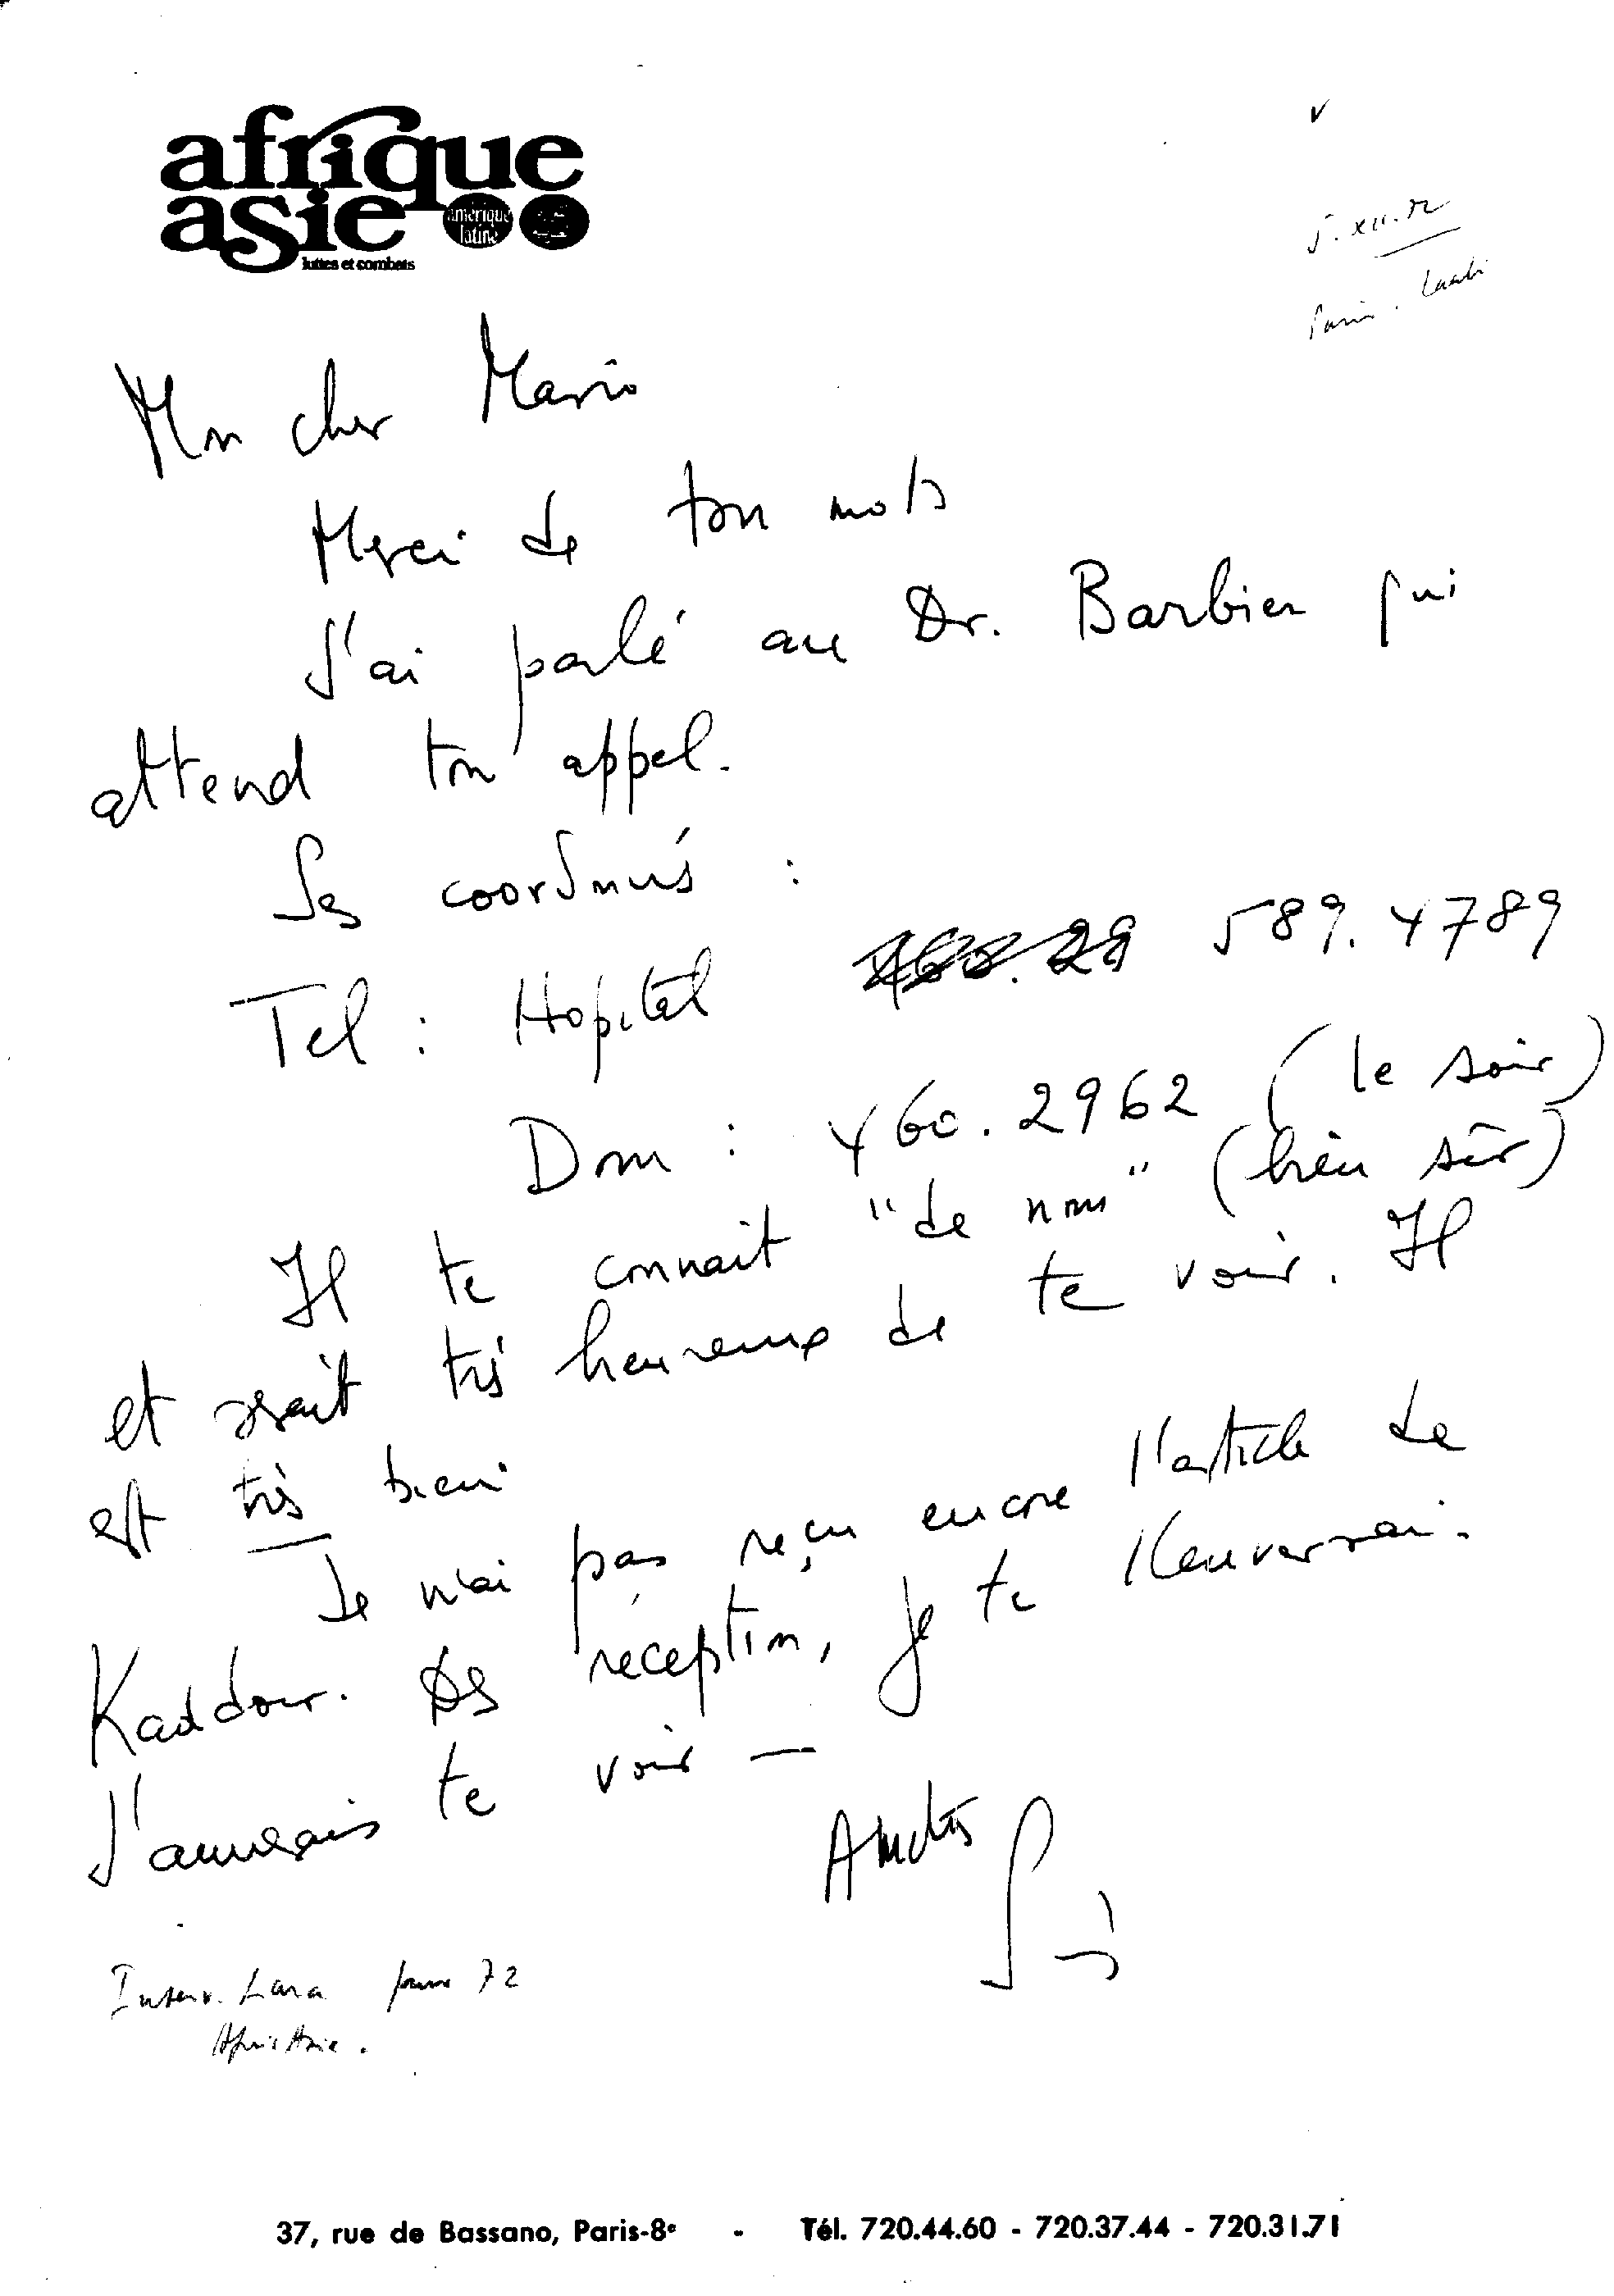 afrique
asie
amérique
latine
luttes et combats
5.XII.72
Paris.
Mon cher Mario
Merci de ton mots
J'ai parlé au Dr. Barbier qui
attend ton appel.
Ses coordonnés :
Tel : Hopital 460.29 589.4789
Dom : 460.2962 (le soir)
Il te connait "de nom" (bien sûr)
et serait très heureux de te voir. Il
est très bien
Je n'ai pas reçu encore l'article de
Kaddour. Dès réception, je te l'enverrai.
J'aimerais te voir —
Amitiés
Interv. Lara 72
AfricAsie.
37, rue de Bassano, Paris-8e - Tél. 720.44.60 - 720.37.44 - 720.31.71